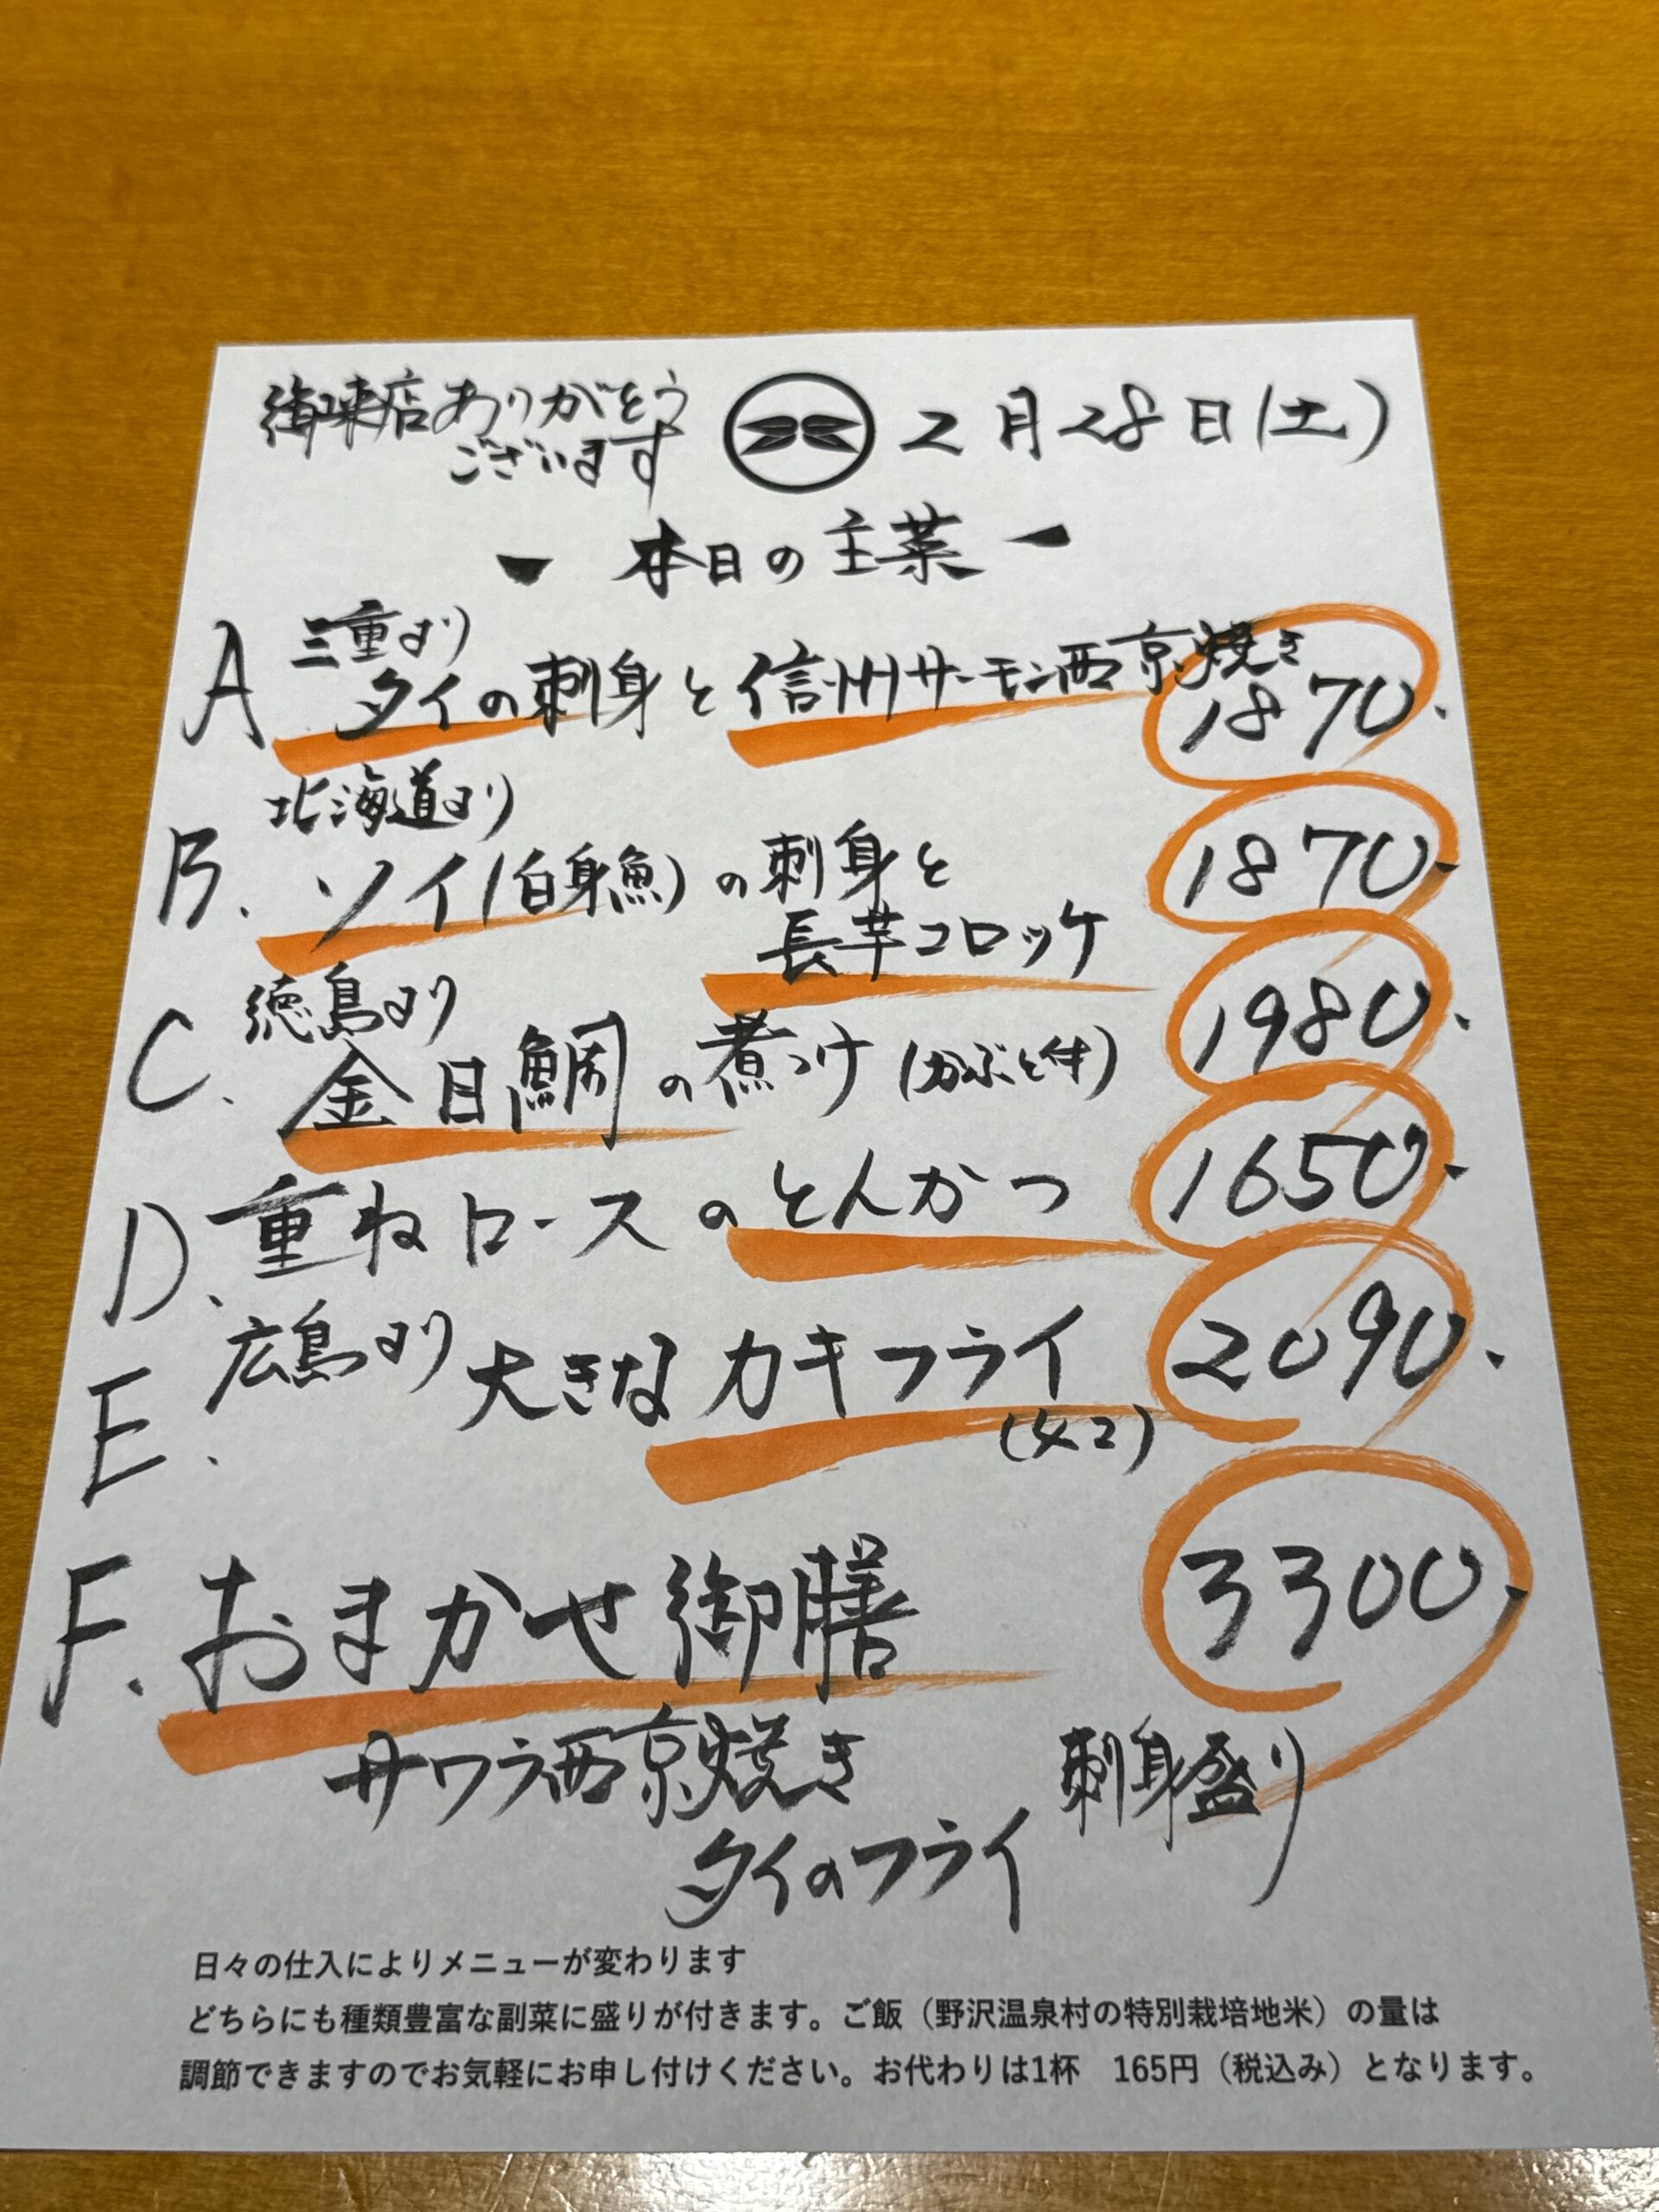 御来店ありがとう
ございます
2月28日(土)
ー 本日の主菜 ー
A 三重より
タイの刺身と信州サーモン西京焼き
1870.
B. 北海道より
ソイ(白身魚)の刺身と
長芋コロッケ
1870.
C. 徳島より
金目鯛の煮つけ(かぶと付)
1980.
D. 重ねロースのとんかつ 1650.
E. 広島より 大きなカキフライ 2090.
(4コ)
F. おまかせ御膳 3300.
サワラ西京焼き 刺身盛り
タイのフライ
日々の仕入によりメニューが変わります
どちらにも種類豊富な副菜に盛りが付きます。ご飯（野沢温泉村の特別栽培地米）の量は
調節できますのでお気軽にお申し付けください。お代わりは1杯　165円（税込み）となります。